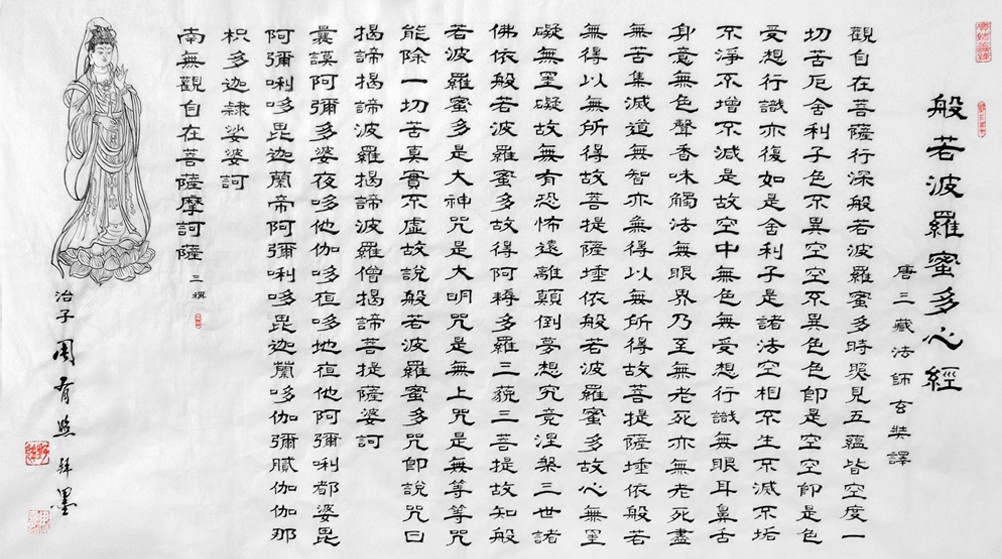 般若波羅蜜多心經
唐三藏法師玄奘譯
觀自在菩薩行深般若波羅蜜多時照見五蘊皆空度一
切苦厄舍利子色不異空空不異色色即是空空即是色
受想行識亦復如是舍利子是諸法空相不生不滅不垢
不淨不增不減是故空中無色無受想行識無眼耳鼻舌
身意無色聲香味觸法無眼界乃至無老死亦無老死盡
無苦集滅道無智亦無得以無所得故菩提薩埵依般若
無得以無所得故菩提薩埵依般若波羅蜜多故心無罣
礙無罣礙故無有恐怖遠離顛倒夢想究竟涅槃三世諸
佛依般若波羅蜜多故得阿耨多羅三藐三菩提故知般
若波羅蜜多是大神咒是大明咒是無上咒是無等等咒
能除一切苦真實不虛故說般若波羅蜜多咒即說咒曰
揭諦揭諦波羅揭諦波羅僧揭諦菩提薩婆訶
曩謨阿彌多婆夜哆他伽哆亱哆地亱他阿彌唎都婆毘
阿彌唎哆毘迦蘭帝阿彌唎哆毘迦蘭哆伽彌膩伽伽那
枳多迦隸娑婆訶
南無觀自在菩薩摩訶薩 三稱
冶子 周 照 拜墨